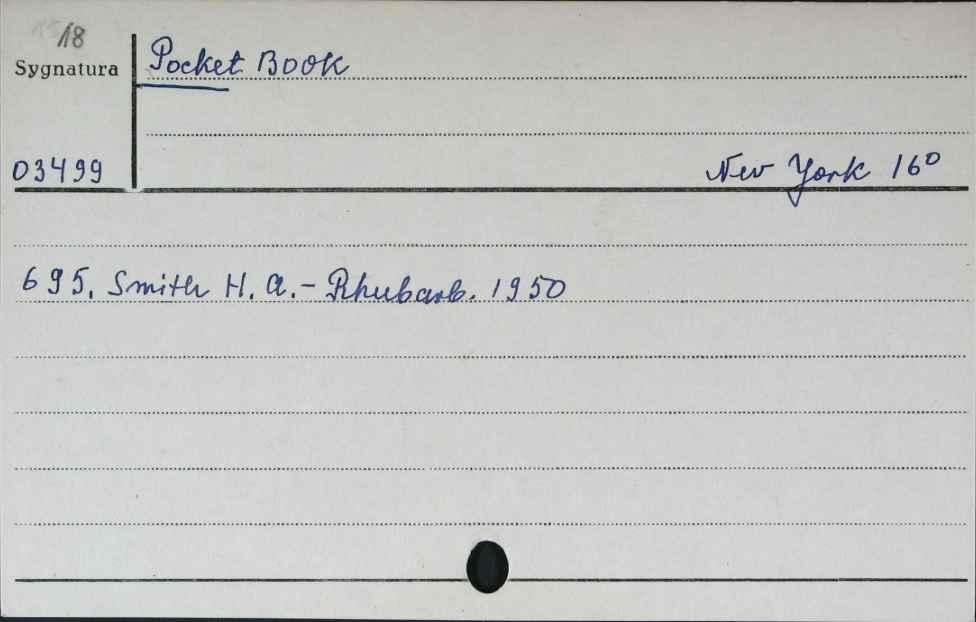 18
Sygnatura
Pocket Book
03499
New York 16°
695. Smith H. A. - Rhubarb. 1950